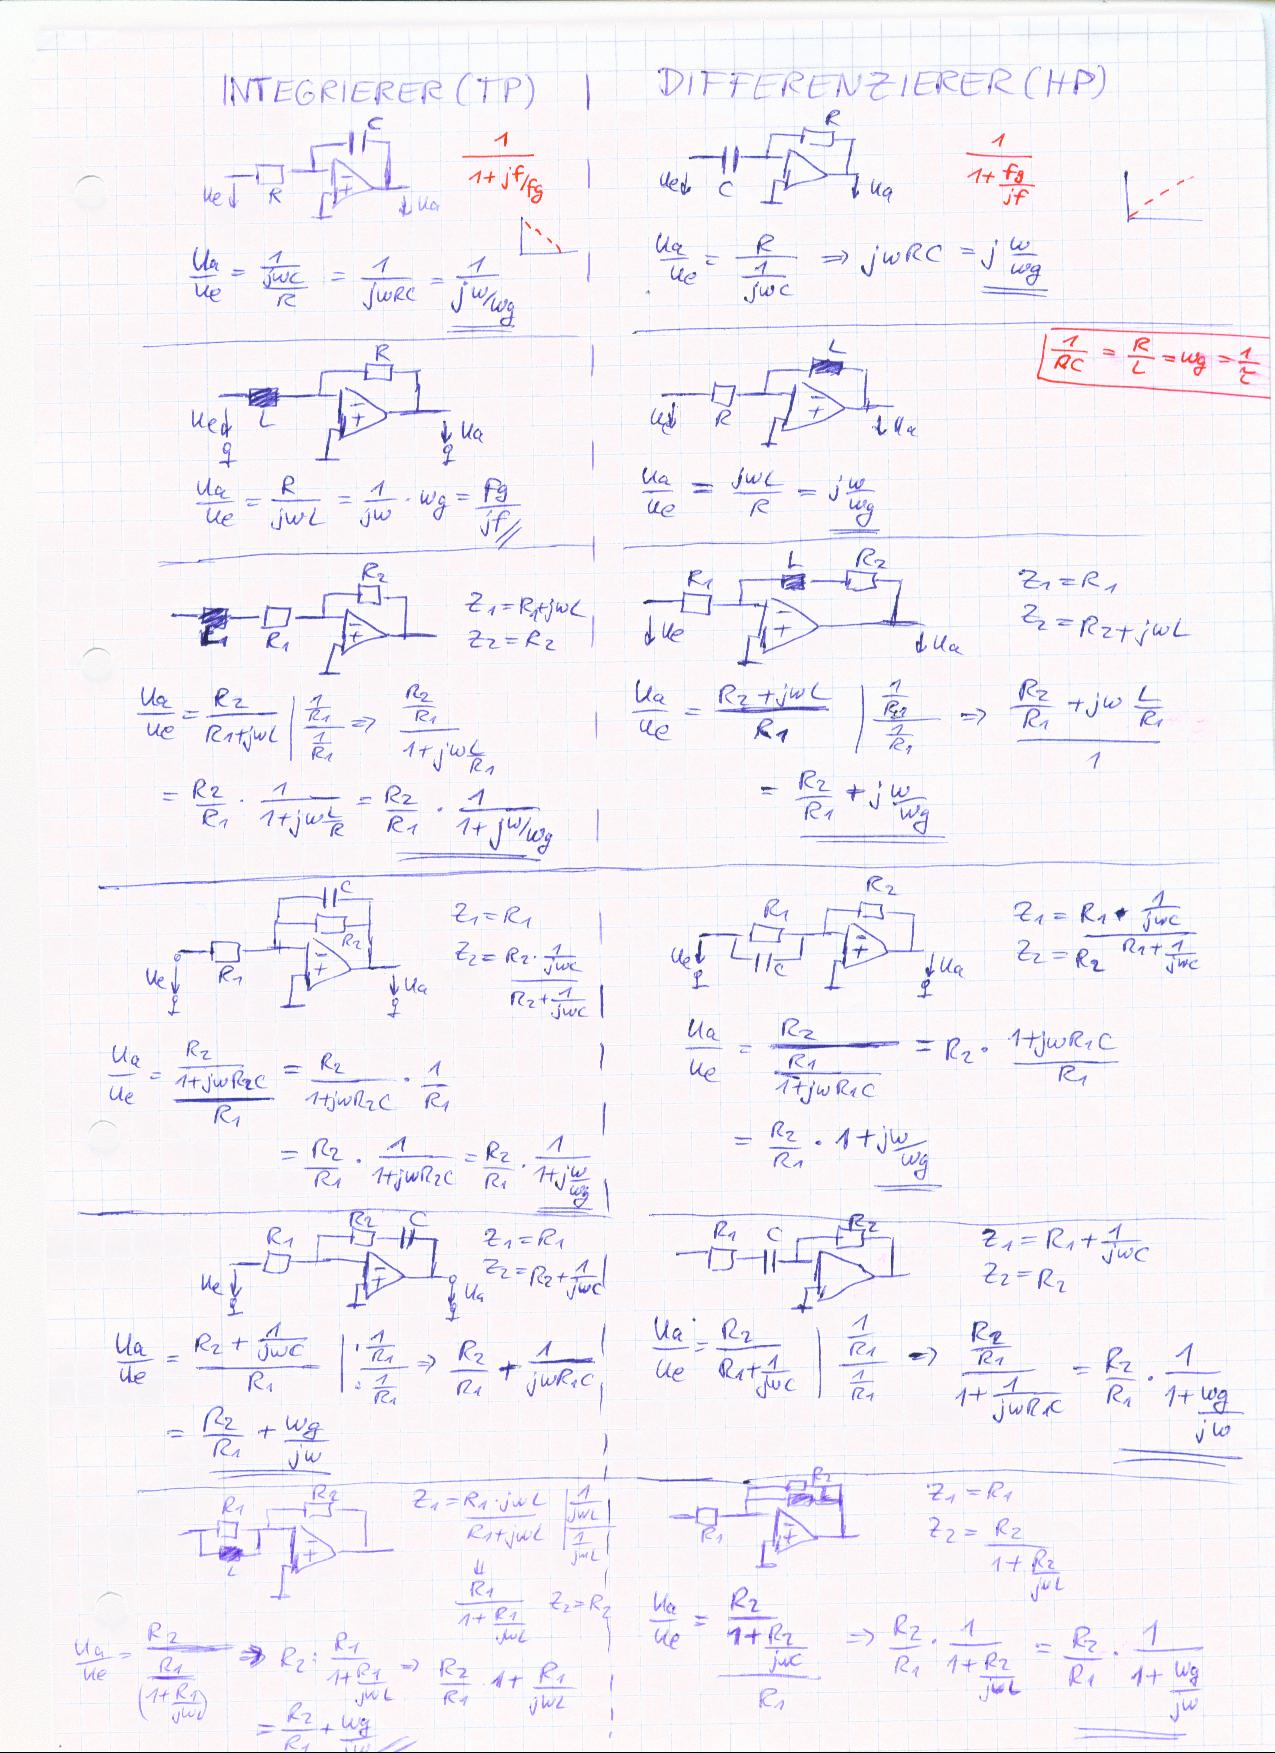 INTEGRIERER (TP) | DIFFERENZIERER (HP)
C
R
Ue
Ua
1/(1+jf/fg)
Ua/Ue = (1/jwC)/R = 1/jwRC = 1/(jw/wg)
R
C
Ue
Ua
1/(1+fg/jf)
Ua/Ue = R/(1/jwC) => jwRC = j w/wg
1/RC = R/L = wg = 1/τ
R
L
Ue
Ua
Ua/Ue = R/jwL = 1/jw · wg = fg/jf
L
R
Ue
Ua
Ua/Ue = jwL/R = j w/wg
R2
L1
R1
Z1 = R1+jwL
Z2 = R2
Ua/Ue = R2/(R1+jwL) | (1/R1)/(1/R1) => (R2/R1)/(1+jw L/R1)
= R2/R1 · 1/(1+jw L/R) = R2/R1 · 1/(1+jw/wg)
R1
L
R2
Ue
Ua
Z1 = R1
Z2 = R2+jwL
Ua/Ue = (R2+jwL)/R1 | => (R2/R1 + jw L/R1)/1
= R2/R1 + j w/wg
C
R2
R1
Ue
Ua
Z1 = R1
Z2 = (R2 · 1/jwC)/(R2 + 1/jwC)
Ua/Ue = (R2/(1+jwR2C))/R1 = R2/(1+jwR2C) · 1/R1
= R2/R1 · 1/(1+jwR2C) = R2/R1 · 1/(1+j w/wg)
R1
C
R2
Ue
Ua
Z1 = (R1 · 1/jwC)/(R1 + 1/jwC)
Z2 = R2
Ua/Ue = R2/(R1/(1+jwR1C)) = R2 · (1+jwR1C)/R1
= R2/R1 · 1+jw/wg
R1
R2
C
Ue
Ua
Z1 = R1
Z2 = R2 + 1/jwC
Ua/Ue = (R2 + 1/jwC)/R1 | : (1/R1)/: (1/R1) => R2/R1 + 1/jwR1C
= R2/R1 + wg/jw
R1
C
R2
Z1 = R1 + 1/jwC
Z2 = R2
Ua/Ue = R2/(R1 + 1/jwC) | (1/R1)/(1/R1) => (R2/R1)/(1 + 1/jwR1C) = R2/R1 · 1/(1 + wg/jw)
R1
R2
L
Z1 = (R1 · jwL)/(R1+jwL) | (1/jwL)/(1/jwL)
↓
R1/(1 + R1/jwL) Z2 = R2
Ua/Ue = R2/(R1/(1+R1/jwL)) => R2 : R1/(1+R1/jwL) => R2/R1 · 1 + R1/jwL
= R2/R1 + wg/jw
R1
R2
L
Z1 = R1
Z2 = R2/(1 + R2/jwL)
Ua/Ue = (R2/(1 + R2/jwC))/R1 => R2/R1 · 1/(1 + R2/jwL) = R2/R1 · 1/(1 + wg/jw)